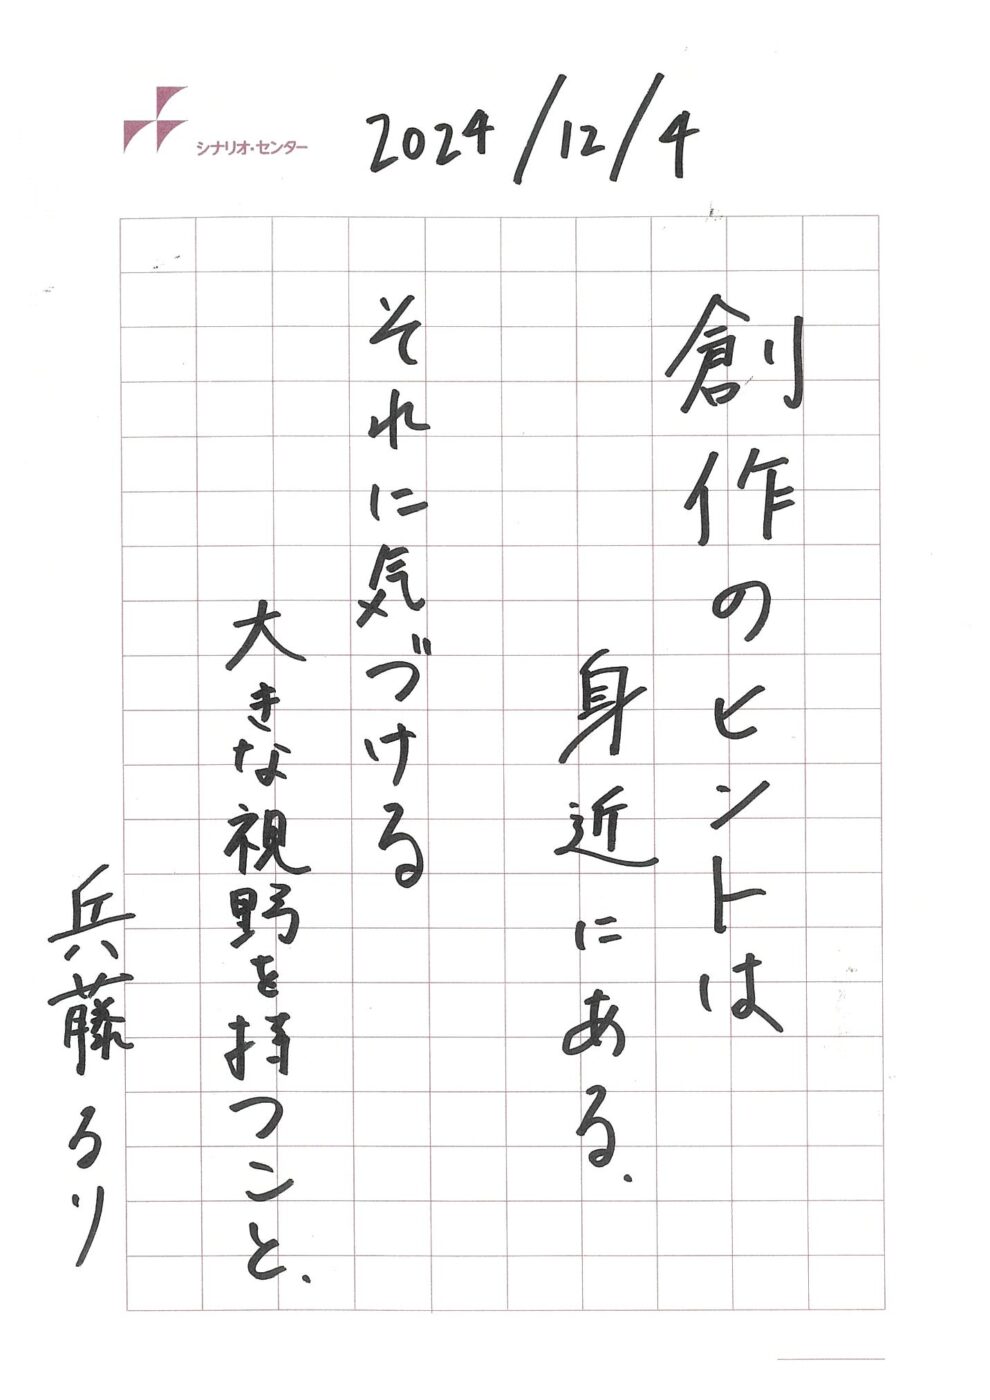 シナリオ・センター
2024/12/4
創作のヒントは
身近にある.
それに気づける
大きな視野を持つこと.
兵藤るり